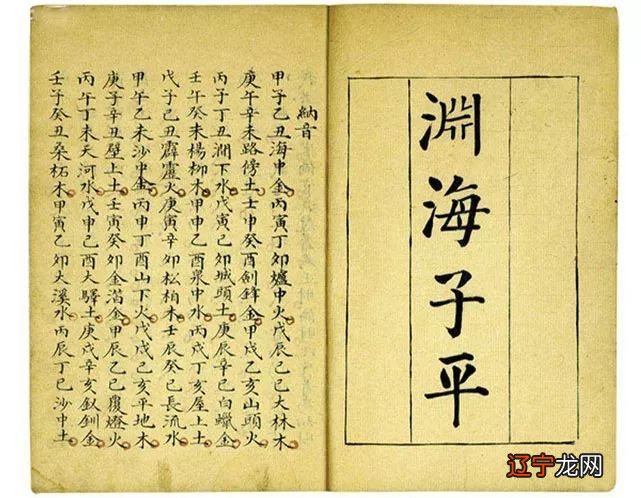 淵海子平
納音
甲子乙丑海中金丙寅丁卯爐中火戊辰己巳大林木
庚午辛未路傍土壬申癸酉劍鋒金甲戌乙亥山頭火
丙子丁丑澗下水戊寅己卯城頭土庚辰辛巳白蠟金
壬午癸未楊柳木甲申乙酉泉中水丙戌丁亥屋上土
戊子己丑霹靂火庚寅辛卯松柏木壬辰癸巳長流水
甲午乙未沙中金丙申丁酉山下火戊戌己亥平地木
庚子辛丑壁上土壬寅癸卯金箔金甲辰乙巳覆燈火
丙午丁未天河水戊申己酉大驛土庚戌辛亥釵釧金
壬子癸丑桑柘木甲寅乙卯大溪水丙辰丁巳沙中土
辽宁龙网